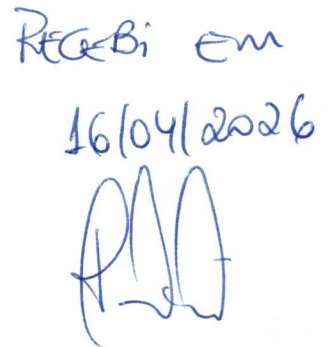 RECEBi Em
16/04/2026